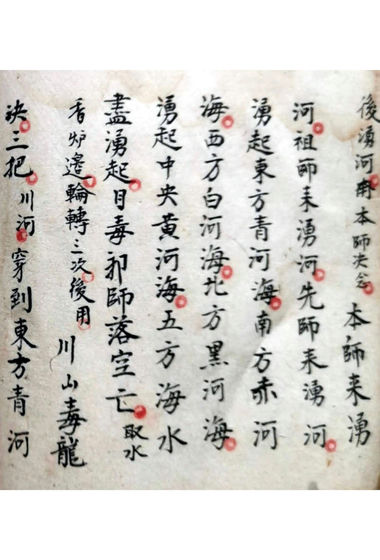 後湧河用本師决念 本師来湧
河祖師来湧河先師来湧河
湧起東方青河海南方赤河
海西方白河海北方黑河海
湧起中央黄河海五方海水
盡湧起目毒邪師落空亡 取水
香炉邉輪轉三次後用 川山毒龍
决三把川河穿到東方青河